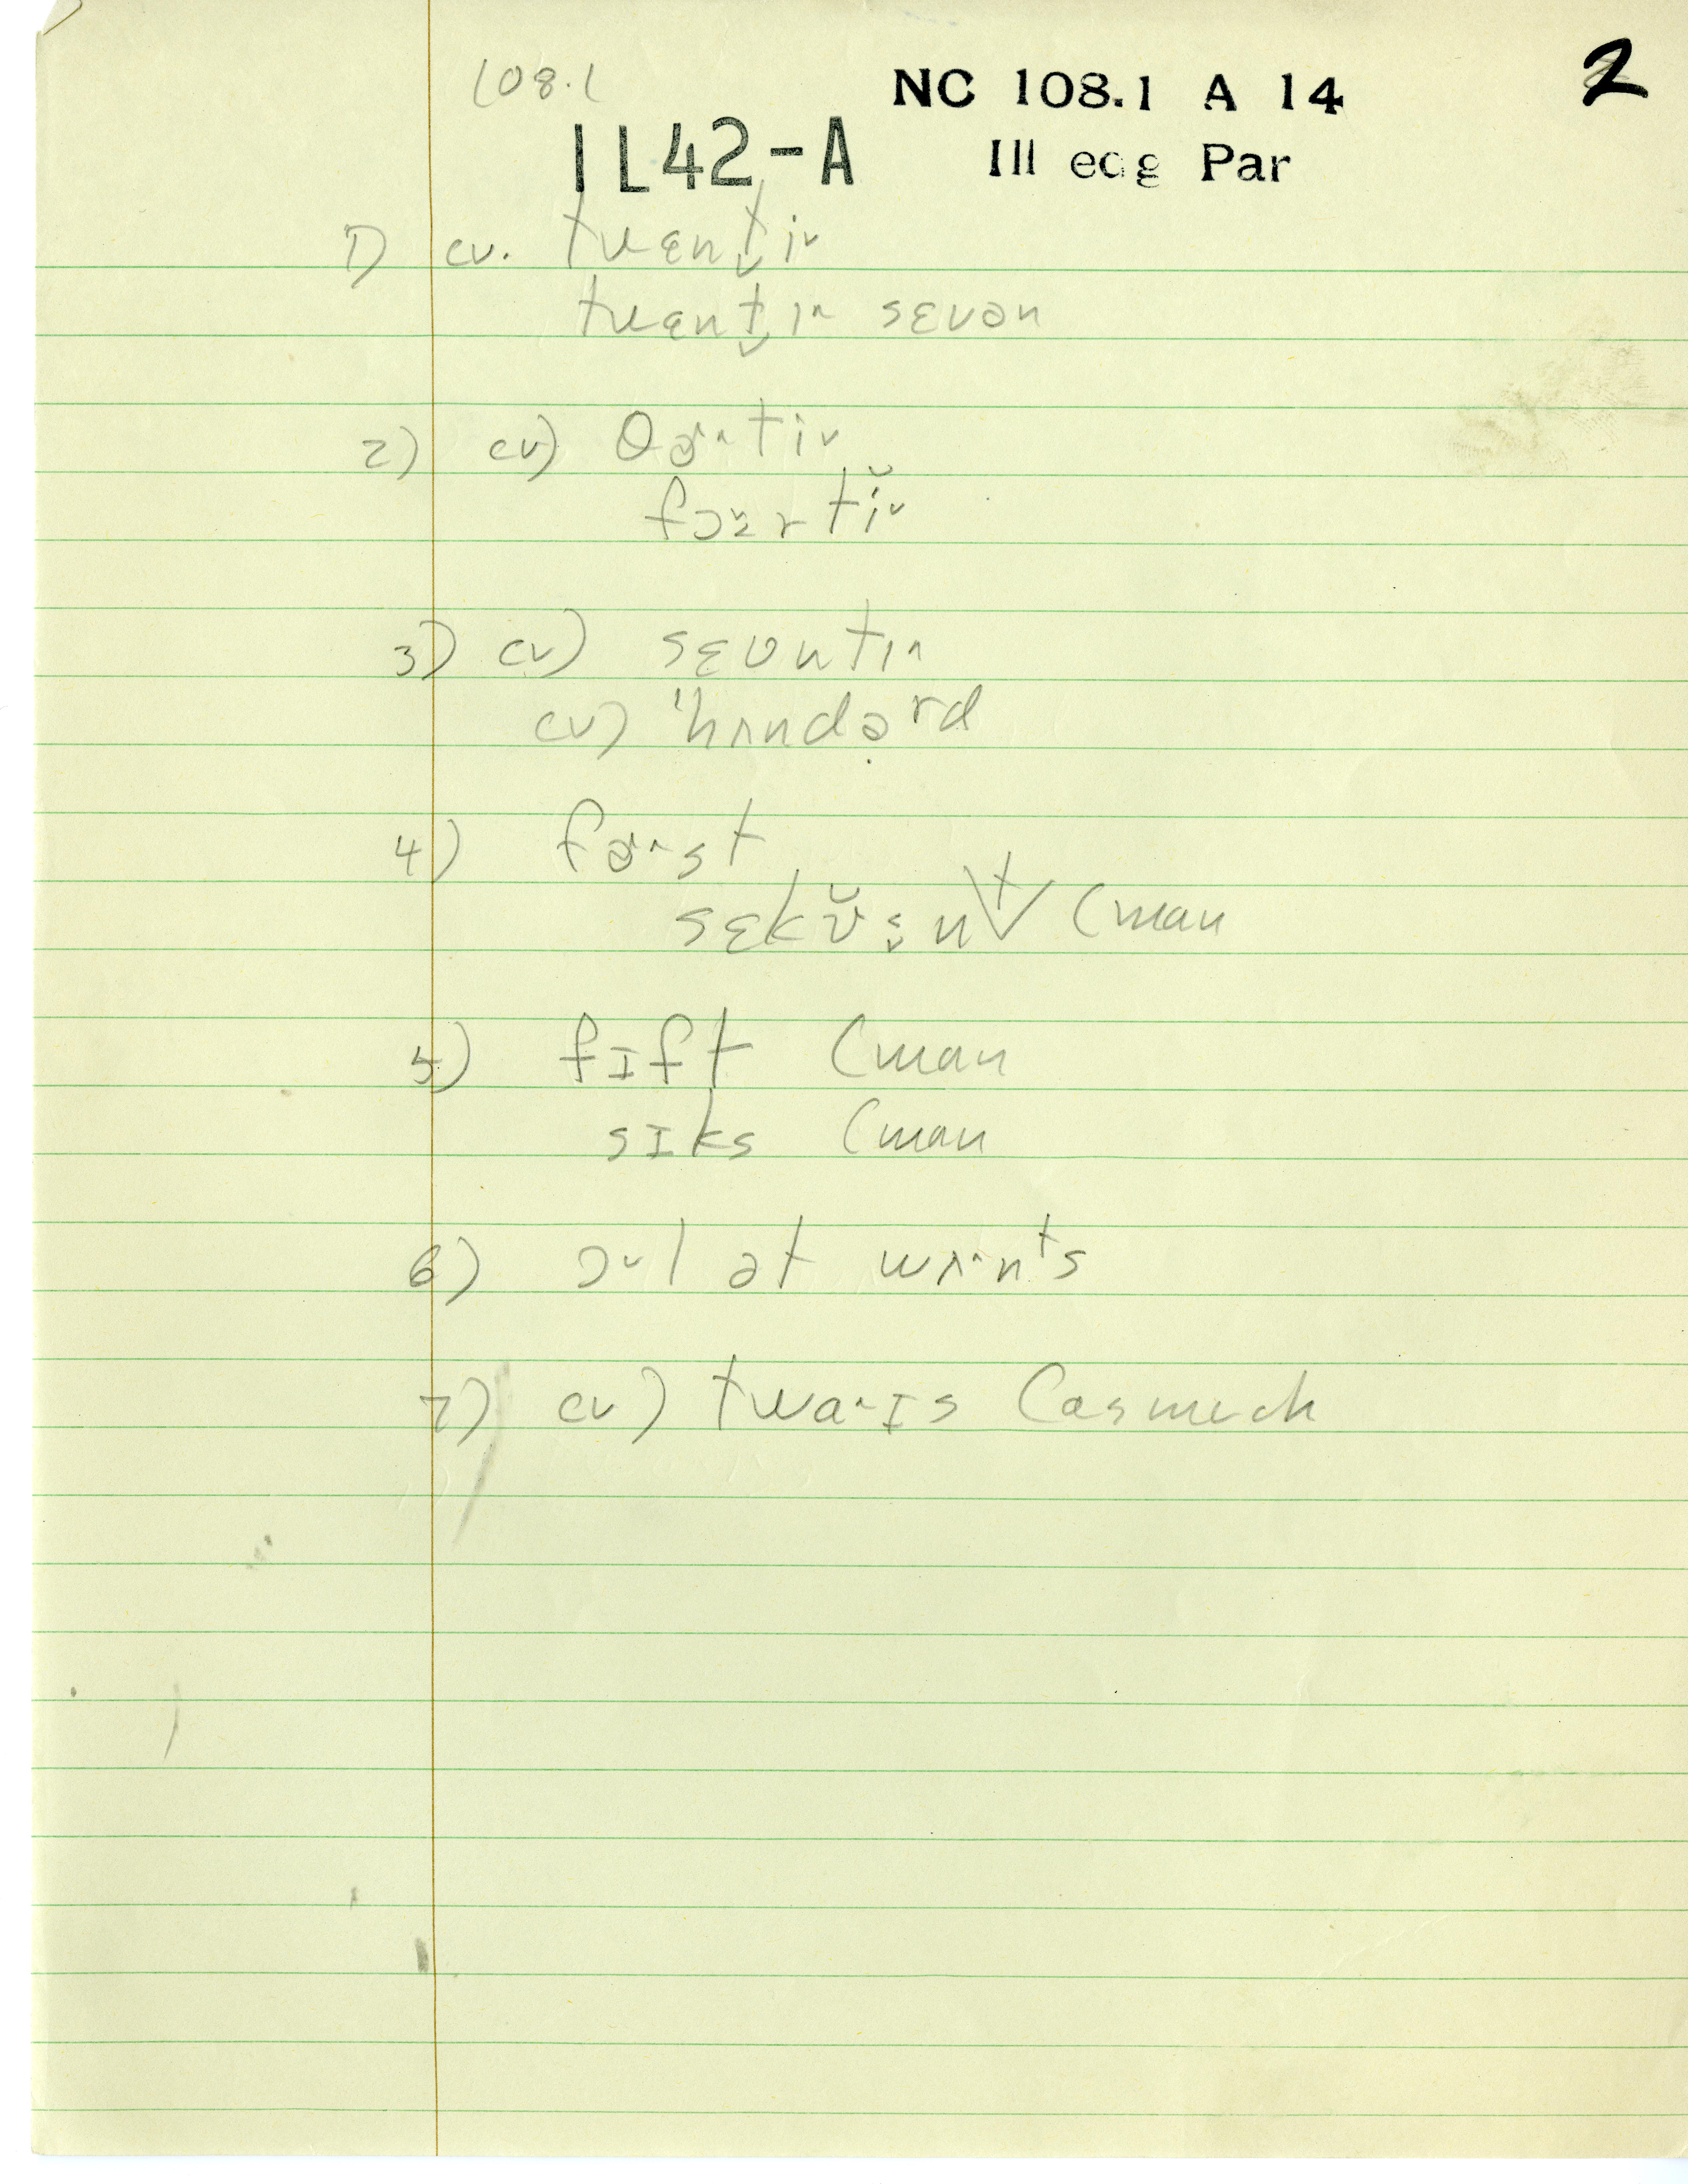 108.1 NC 108.1 A 14 2
1L42-A Ill edg Par
1) cv. twɛnt̬i˅
twɛnt̬i˄ sɛvən
2) cv) θə˞˄ti˅
fɔ˅ɚti̮˅
3) cv) sɛvnti˄
cv) 'hʌndə̣rd
4) fə˞˄st
sɛkɛn\t/ (man
5) fɪft (man
sɪks (man
6) ɔ˅l ət wʌ˄nᵗs
7) cv) twa˄ɪs (as much